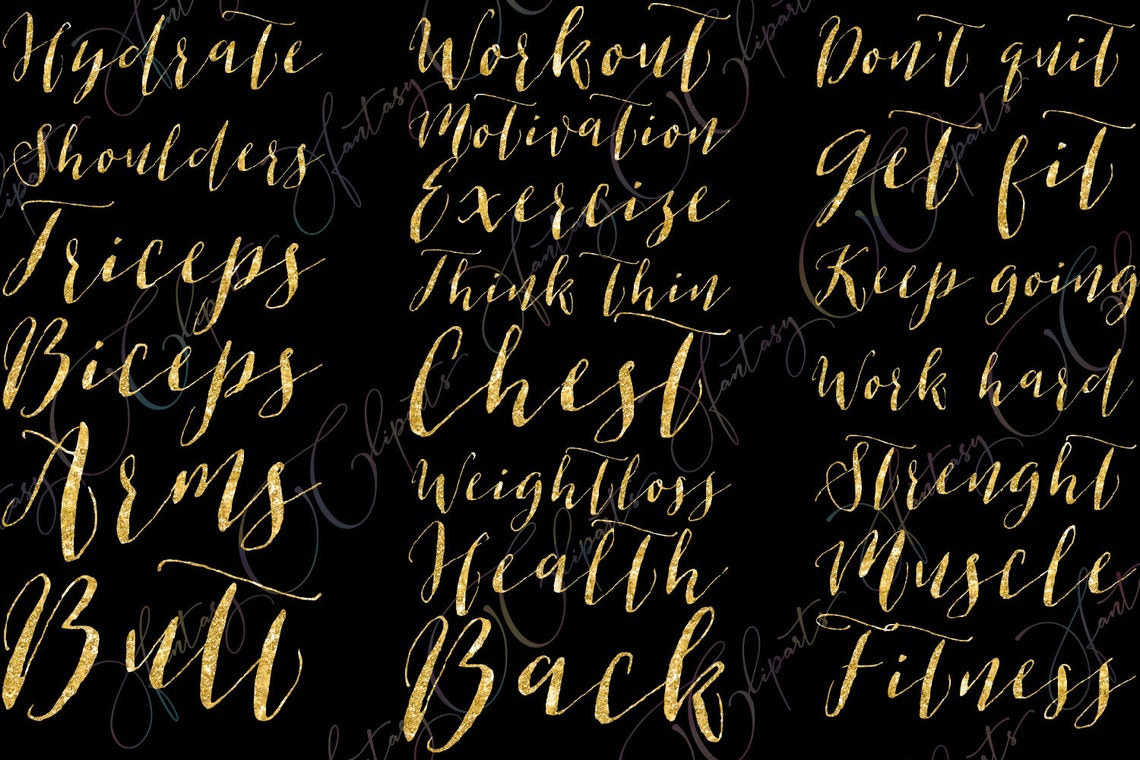 Hydrate
Shoulders
Triceps
Biceps
Arms
Butt
Workout
Motivation
Exercize
Think thin
Chest
Weightloss
Health
Back
Don't quit
Get fit
Keep going
Work hard
Strenght
Muscle
Fitness